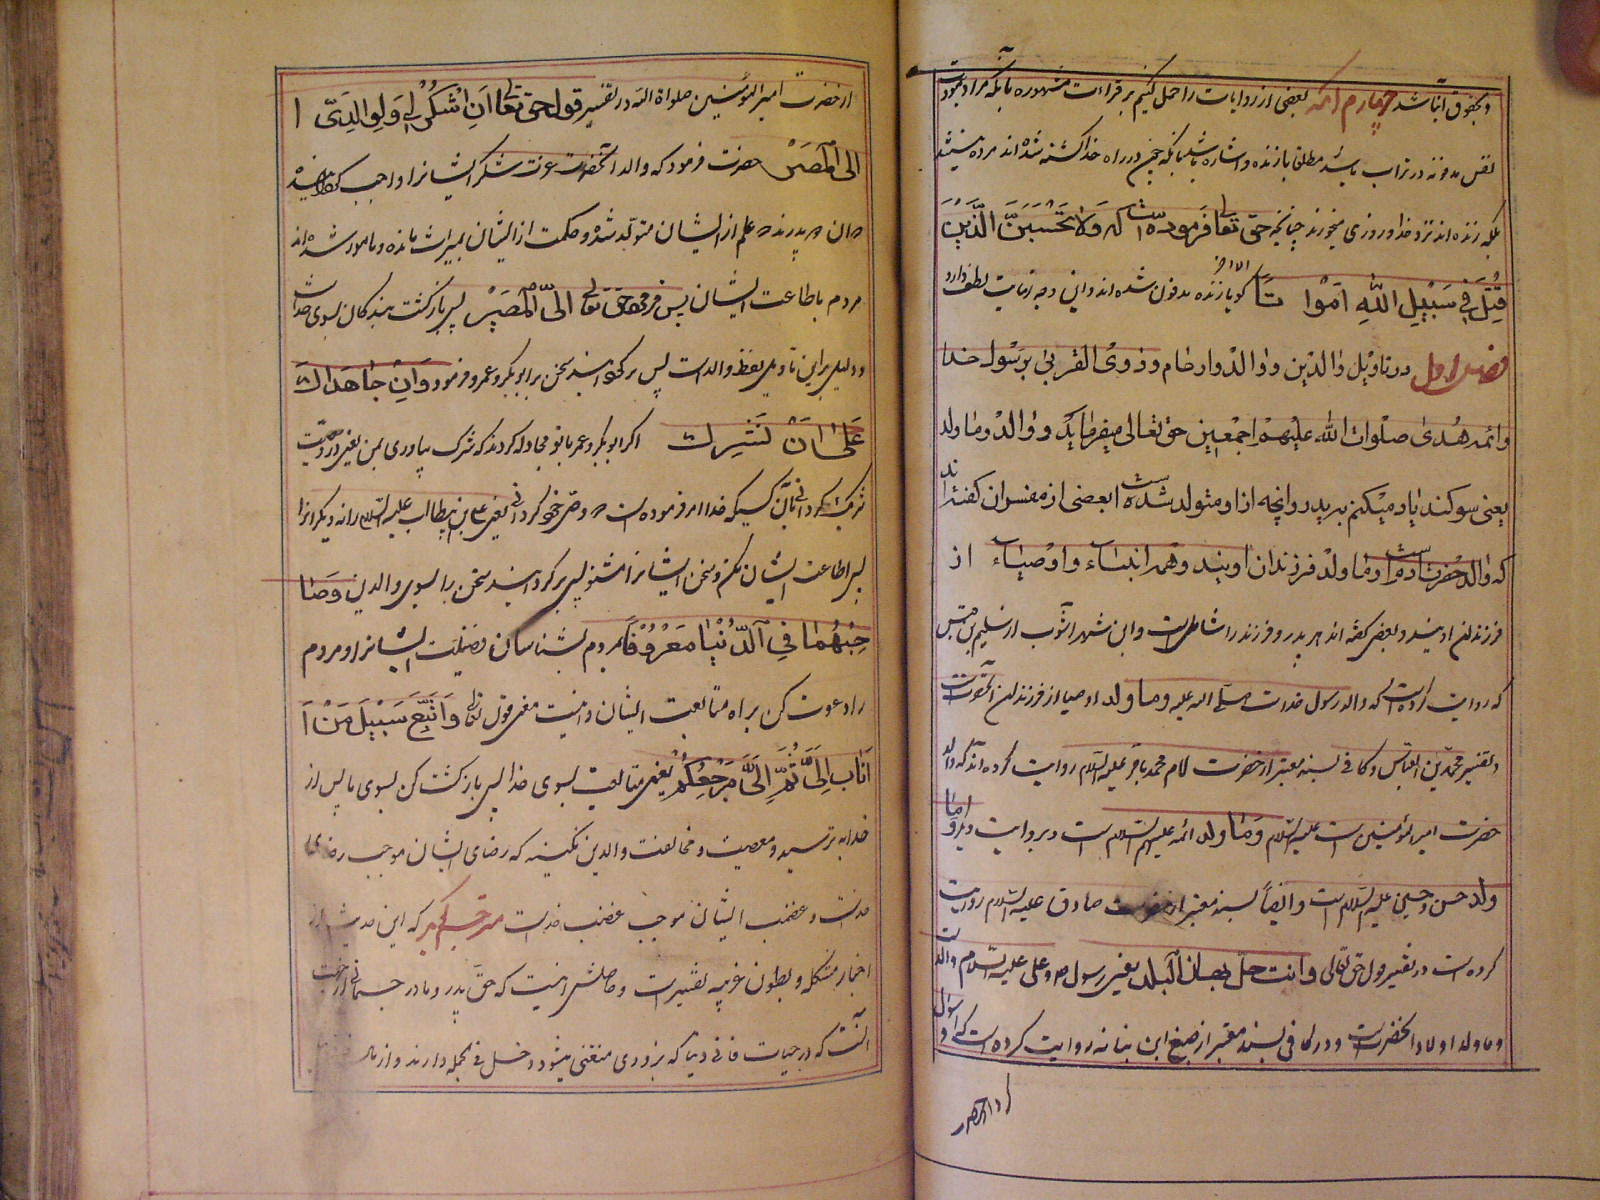 و بحقوق اینا شد چهارم آنکه بعضی از روایات را حمل کنیم بر قراءت مشهوره بآنکه مراد بمودت
نفس مدفونه در تراب باشد مطلقا یا زنده و اشاره باشد بآنکه چون در راه خدا کشته شده اند مرده نیستند
بلکه زنده اند نزد خدا و روزی میخورند چنانچه حق تعالی فرموده است که وَلا تَحْسَبَنَّ الَّذِیْنَ
قُتِلُ فِی سَبِیْلِ اللهِ اَمْوٰاتاً گویا زنده مدفون شده اند و این وجه نهایت لطف دارد
فصل اول در تاویل والدین و والد و ارحام و ذوی القربی برسول خدا
و ائمه هدی صلوات الله علیهم اجمعین حق تعالی میفرماید و والد وما ولد
یعنی سوگند یاد میکنم بپدر و آنچه از او متولد شده است بعضی از مفسران گفته اند
که والد حضرت آدم است و ما ولد فرزندان اویند و همه انبیاء و اوصیاء از
فرزندان اویند و بعضی گفته اند هر پدر و فرزند را شامل است و ابن شهر آشوب از سلیم بن قیس
که روایت کرده است که والد رسول خداست صلی الله علیه و ما ولد اوصیا از فرزندان آنحضرت
و تفسیر محمد بن العباس و کافی بسند معتبر از حضرت امام محمد باقر علیه السلام روایت کرده اند که والد
حضرت امیر المؤمنین است علیه السلام وما ولد ائمه علیهم السلام است و بروایت دیگر و اما
ولد حسن و حسین علیه السلام است و ایضاً بسند معتبر از حضرت صادق علیه السلام روایت
کرده است در تفسیر قول حق تعالی وانت حل بهذا البلد یعنی رسول ص و علی علیه السلام والد است
وما ولد اولاد آنحضرت است و در کافی بسند معتبر از اصبغ ابن نباته روایت کرده است که او سؤال
از حضرت امیر المؤمنین صلواة الله در تفسیر قول حق تعالی اَنِ اشْکُرْ لِی وَلِوالِدَیَّ
اِلَی الْمَصِیْر حضرت فرمود که والد آنحضرت عزت شکر ایشانرا واجب گردانیده
آن دو پدرند که علم از ایشان متولد شده و حکمت از ایشان بمیراث مانده و مامور شده اند
مردم باطاعت ایشان پس فرمود حق تعالی الیّ الْمَصِیْر پس بازگشت بندگان بسوی خداست
و دلیل بر این تاویل لفظ والد است پس برگردانید سخن بر ابو بکر و عمر و فرمود وَاِنْ جاهَداکَ
عَلیٰ اَنْ تُشْرِکَ اگر ابو بکر و عمر با تو مجادله کردند که شرک بیاوری بمن یعنی در وصیت
شریک گردانی بآن کسیکه خدا امر فرموده است که وصی خود گردانی یعنی علی بن ابیطالب علیه السلام را نه دیگرانرا
پس اطاعت ایشان مکن و سخن ایشانرا مشنو پس برگردانید سخن را بسوی والدین وَصا
حِبْهُما فِی الدُّنْیٰا مَعْرُوْفاً بمردم بشناسان فضیلت ایشانرا و مردم
را دعوت کن براه متابعت ایشان و اینست معنی قول تعالی وَاتَّبِعْ سَبِیْلَ مَنْ اَ
اَنابَ اِلَیَّ ثُمَّ اِلَیَّ مَرْجِعُکُمْ یعنی متابعت بسوی خدا پس بازگشت کن بسوی ما پس از
خدا بترسید و معصیت و مخالفت والدین نکنید که رضای ایشان موجب رضای
خداست و غضب ایشان موجب غضب خداست مترجم گوید که این حدیث از
اخبار مشکله و بطون غریبه تفسیر است و حاصلش اینست که حق پدر و مادر جسمانی از جهت
آنست که در حیات فانی دنیا که بزودی منقضی میشود دخل فی الجمله دارند و از برا